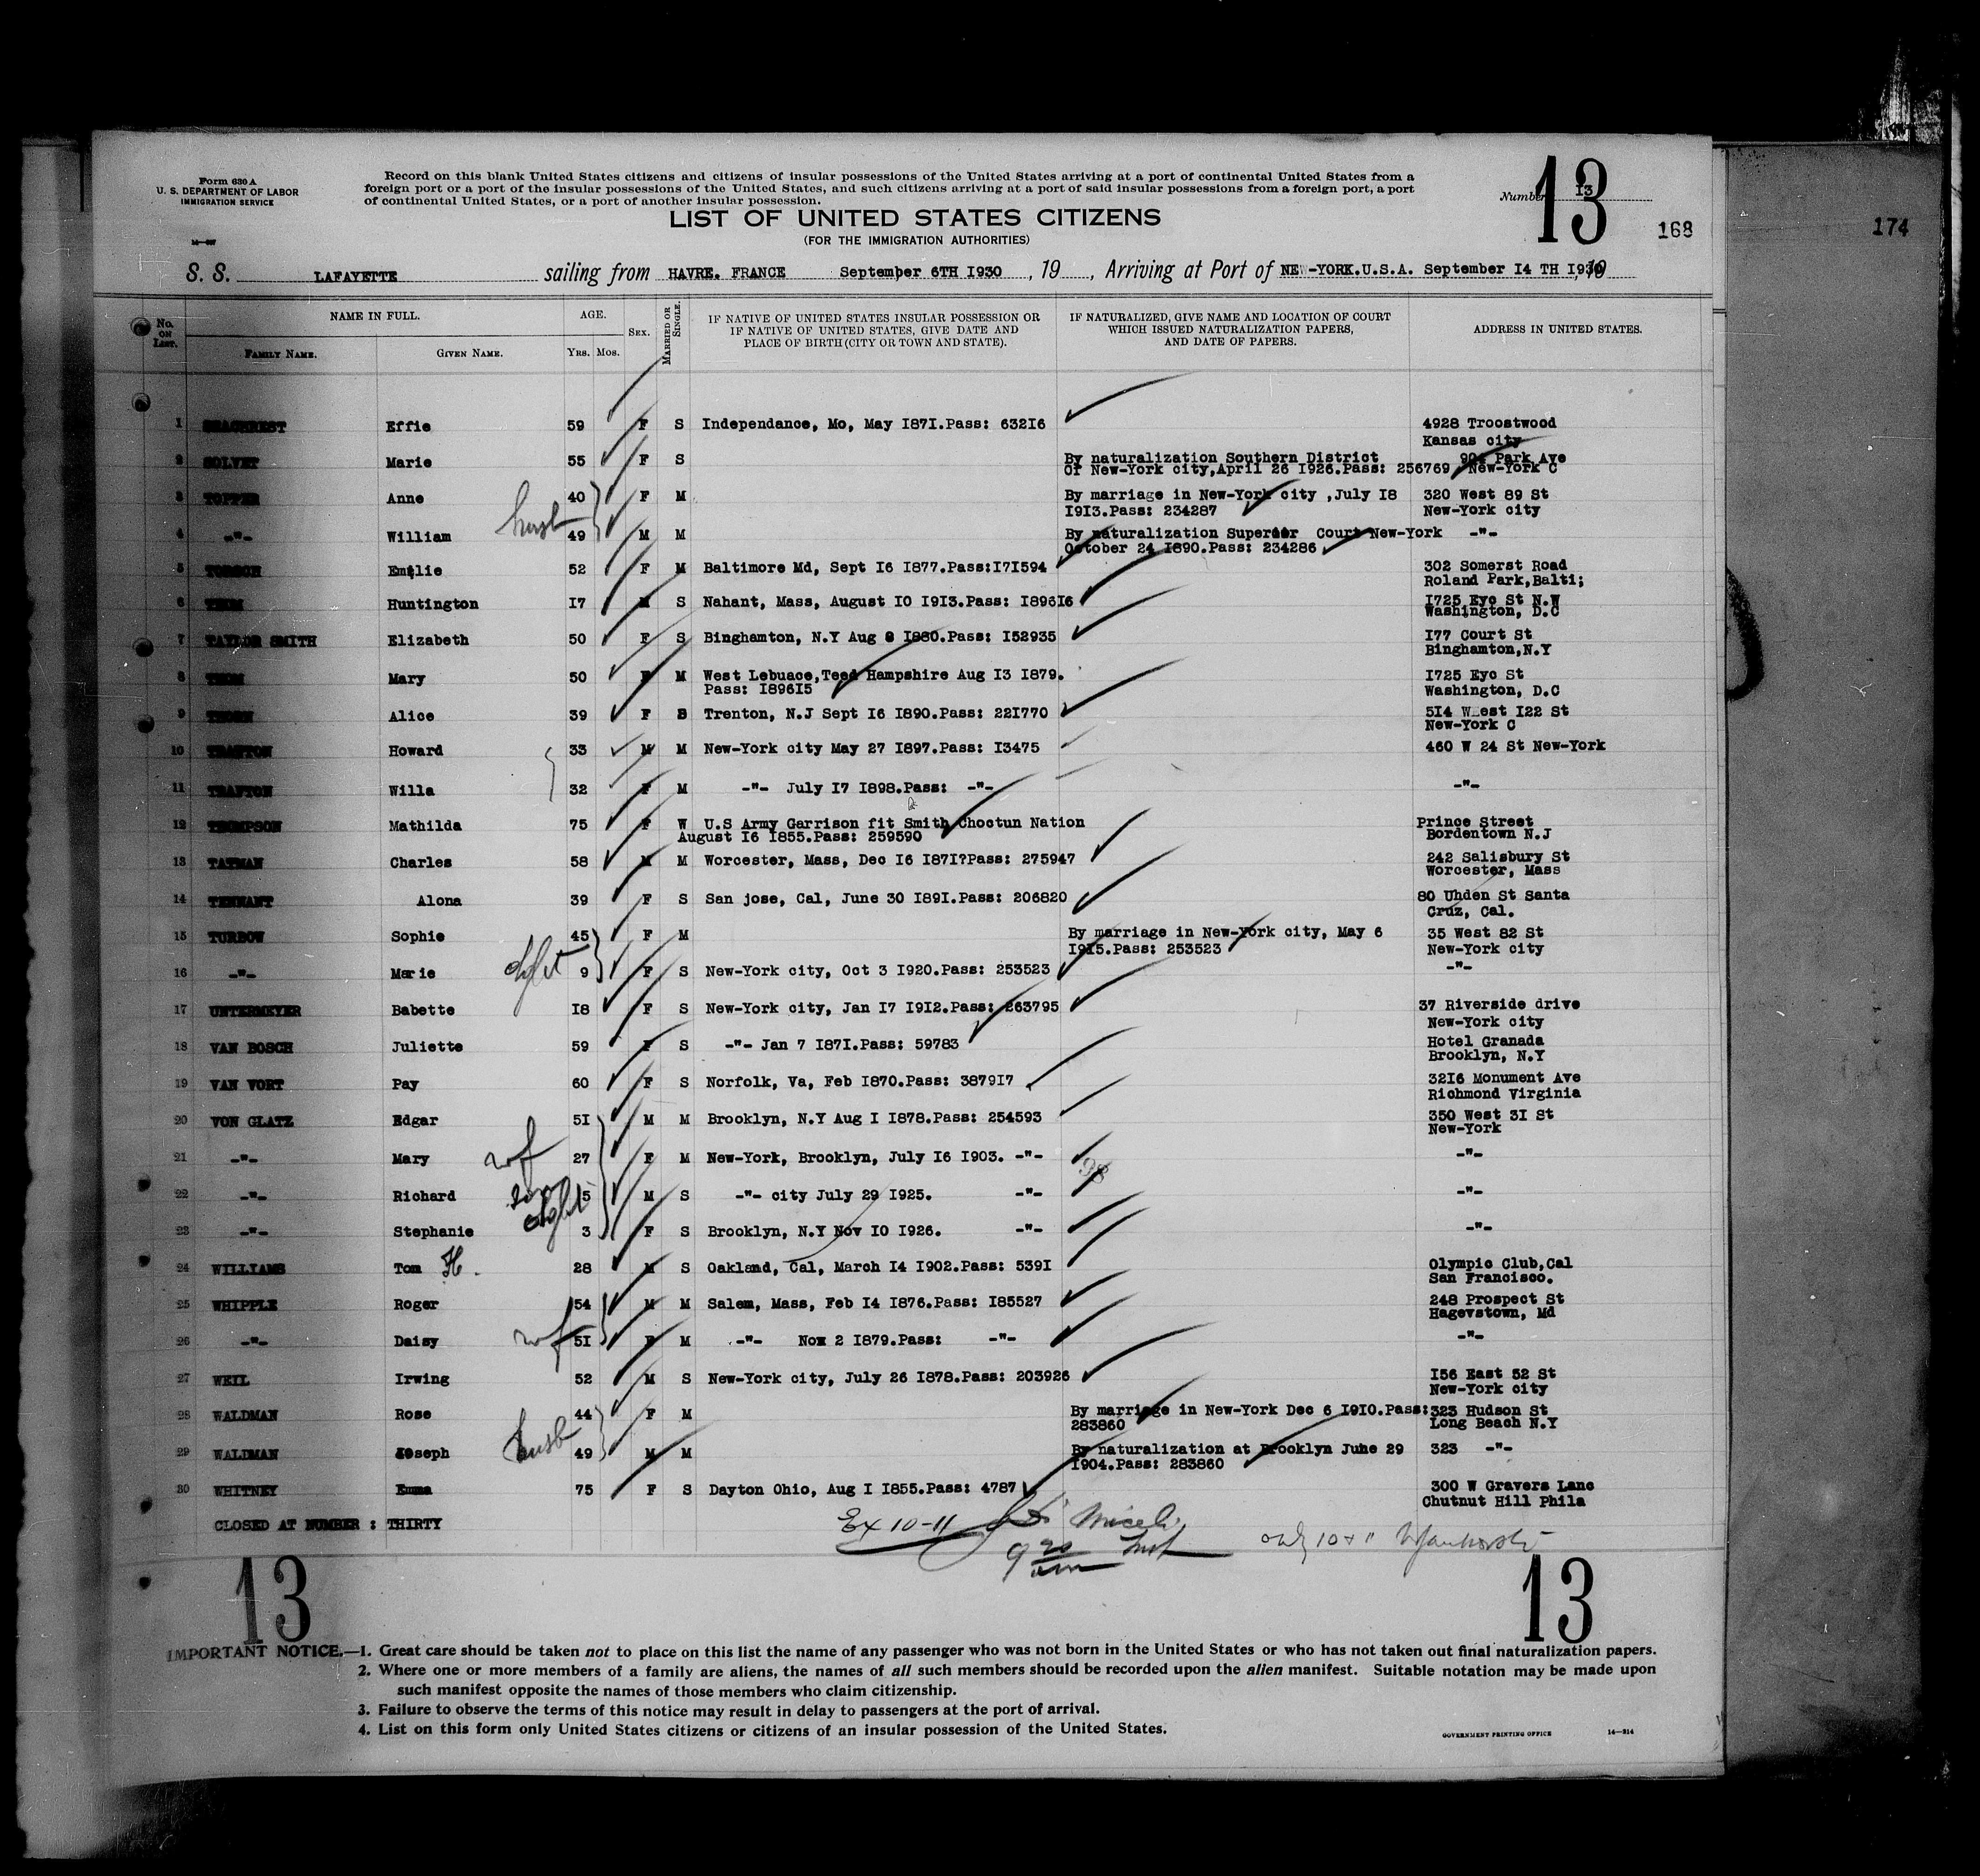 Form 630 A
U. S. DEPARTMENT OF LABOR
IMMIGRATION SERVICE
Record on this blank United States citizens and citizens of insular possessions of the United States arriving at a port of continental United States from a
foreign port or a port of the insular possessions of the United States, and such citizens arriving at a port of said insular possessions from a foreign port, a port
of continental United States, or a port of another insular possession.
Number I3
13
168
174
LIST OF UNITED STATES CITIZENS
(FOR THE IMMIGRATION AUTHORITIES)
S. S. LAFAYETTE sailing from HAVRE. FRANCE September 6TH I930, 19, Arriving at Port of NEW-YORK.U.S.A. September I4 TH I930, 19
No. ON LIST. NAME IN FULL. FAMILY NAME. GIVEN NAME. AGE. YRS. MOS. SEX. MARRIED OR SINGLE.
IF NATIVE OF UNITED STATES INSULAR POSSESSION OR
IF NATIVE OF UNITED STATES, GIVE DATE AND
PLACE OF BIRTH (CITY OR TOWN AND STATE).
IF NATURALIZED, GIVE NAME AND LOCATION OF COURT
WHICH ISSUED NATURALIZATION PAPERS,
AND DATE OF PAPERS.
ADDRESS IN UNITED STATES.
1 SEACHREST Effie 59 F S Independance, Mo, May I87I.Pass: 632I6 4928 Troostwood
Kansas city
2 SOLVET Marie 55 F S By naturalization Southern District 904 Park Ave
Of New-York city,April 26 I926.Pass: 256769 New-York C
3 TOPPER Anne 40 F M By marriage in New-York city ,July I8 320 West 89 St
I9I3.Pass: 234287 New-York city
4 -"- William husb 49 M M By naturalization Superior Court New-York -"-
October 24 I890.Pass: 234286
5 TORSCH Emilie 52 F M Baltimore Md, Sept I6 I877.Pass:I7I594 302 Somerst Road
Roland Park,Balti;
6 THOM Huntington I7 M S Nahant, Mass, August I0 I9I3.Pass: I896I6 I725 Eye St N.W
Washington, D.C
7 TAYLOR SMITH Elizabeth 50 F S Binghamton, N.Y Aug 8 I880.Pass: I52935 I77 Court St
Binghamton,N.Y
8 THOM Mary 50 F M West Lebuace,Teed Hampshire Aug I3 I879. I725 Eye St
Pass: I896I5 Washington, D.C
9 THORN Alice 39 F S Trenton, N.J Sept I6 I890.Pass: 22I770 5I4 West I22 St
New-York C
10 TRAFTON Howard 33 M M New-York city May 27 I897.Pass: I3475 460 W 24 St New-York
11 TRAFTON Willa 32 F M -"- July I7 I898.Pass: -"- -"-
12 THOMPSON Mathilda 75 F W U.S Army Garrison fit Smith Choctun Nation Prince Street
August I6 I855.Pass: 259590 Bordentown N.J
13 TATMAN Charles 58 M M Worcester, Mass, Dec I6 I87I?Pass: 275947 242 Salisbury St
Worcester, Mass
14 TENNANT Alona 39 F S San jose, Cal, June 30 I89I.Pass: 206820 80 Uhden St Santa
Cruz, Cal.
15 TURBOW Sophie 45 F M By marriage in New-York city, May 6 35 West 82 St
I9I5.Pass: 253523 New-York city
16 -"- Marie dght 9 F S New-York city, Oct 3 I920.Pass: 253523 -"-
17 UNTERMEYER Babette I8 F S New-York city, Jan I7 I9I2.Pass: 263795 37 Riverside drive
New-York city
18 VAN BOSCH Juliette 59 F S -"- Jan 7 I87I.Pass: 59783 Hotel Granada
Brooklyn, N.Y
19 VAN VORT Pay 60 F S Norfolk, Va, Feb I870.Pass: 3879I7 32I6 Monument Ave
Richmond Virginia
20 VON GLATZ Edgar 5I M M Brooklyn, N.Y Aug I I878.Pass: 254593 350 West 3I St
New-York
21 -"- Mary wf 27 F M New-York, Brooklyn, July I6 I903. -"- -"-
22 -"- Richard son 5 M S -"- city July 29 I925. -"- -"-
23 -"- Stephanie dght 3 F S Brooklyn, N.Y Nov I0 I926. -"- -"-
24 WILLIAMS Tom H. 28 M S Oakland, Cal, March I4 I902.Pass: 539I Olympic Club,Cal
San Francisco.
25 WHIPPLE Roger 54 M M Salem, Mass, Feb I4 I876.Pass: I85527 248 Prospect St
Hagevstown, Md
26 -"- Daisy wf 5I F M -"- Nov 2 I879.Pass: -"- -"-
27 WEIL Irwing 52 M S New-York city, July 26 I878.Pass: 203926 I56 East 52 St
New-York city
28 WALDMAN Rose 44 F M By marriage in New-York Dec 6 I9I0.Pass: 323 Hudson St
283860 Long Beach N.Y
29 WALDMAN Joseph husb 49 M M By naturalization at Brooklyn June 29 323 -"-
I904.Pass: 283860
30 WHITNEY Emma 75 F S Dayton Ohio, Aug I I855.Pass: 4787 300 W Gravers Lane
Chutnut Hill Phila
CLOSED AT NUMBER : THIRTY
Ex 10-11
9 20 am
only 10 + 11
13
13
IMPORTANT NOTICE.—1. Great care should be taken not to place on this list the name of any passenger who was not born in the United States or who has not taken out final naturalization papers.
2. Where one or more members of a family are aliens, the names of all such members should be recorded upon the alien manifest. Suitable notation may be made upon
such manifest opposite the names of those members who claim citizenship.
3. Failure to observe the terms of this notice may result in delay to passengers at the port of arrival.
4. List on this form only United States citizens or citizens of an insular possession of the United States.
GOVERNMENT PRINTING OFFICE 14—314